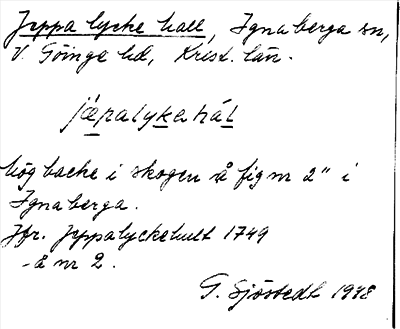 Jeppa lycke hall, Ignaberga sn,
V. Göinge hd, Krist. län.
jäpalykahál
hög backe i skogen å fig nr 2" i
Ignaberga.
Jfr. Jeppalyckehult 1749
- å nr 2.
G. Sjöstedt 1948